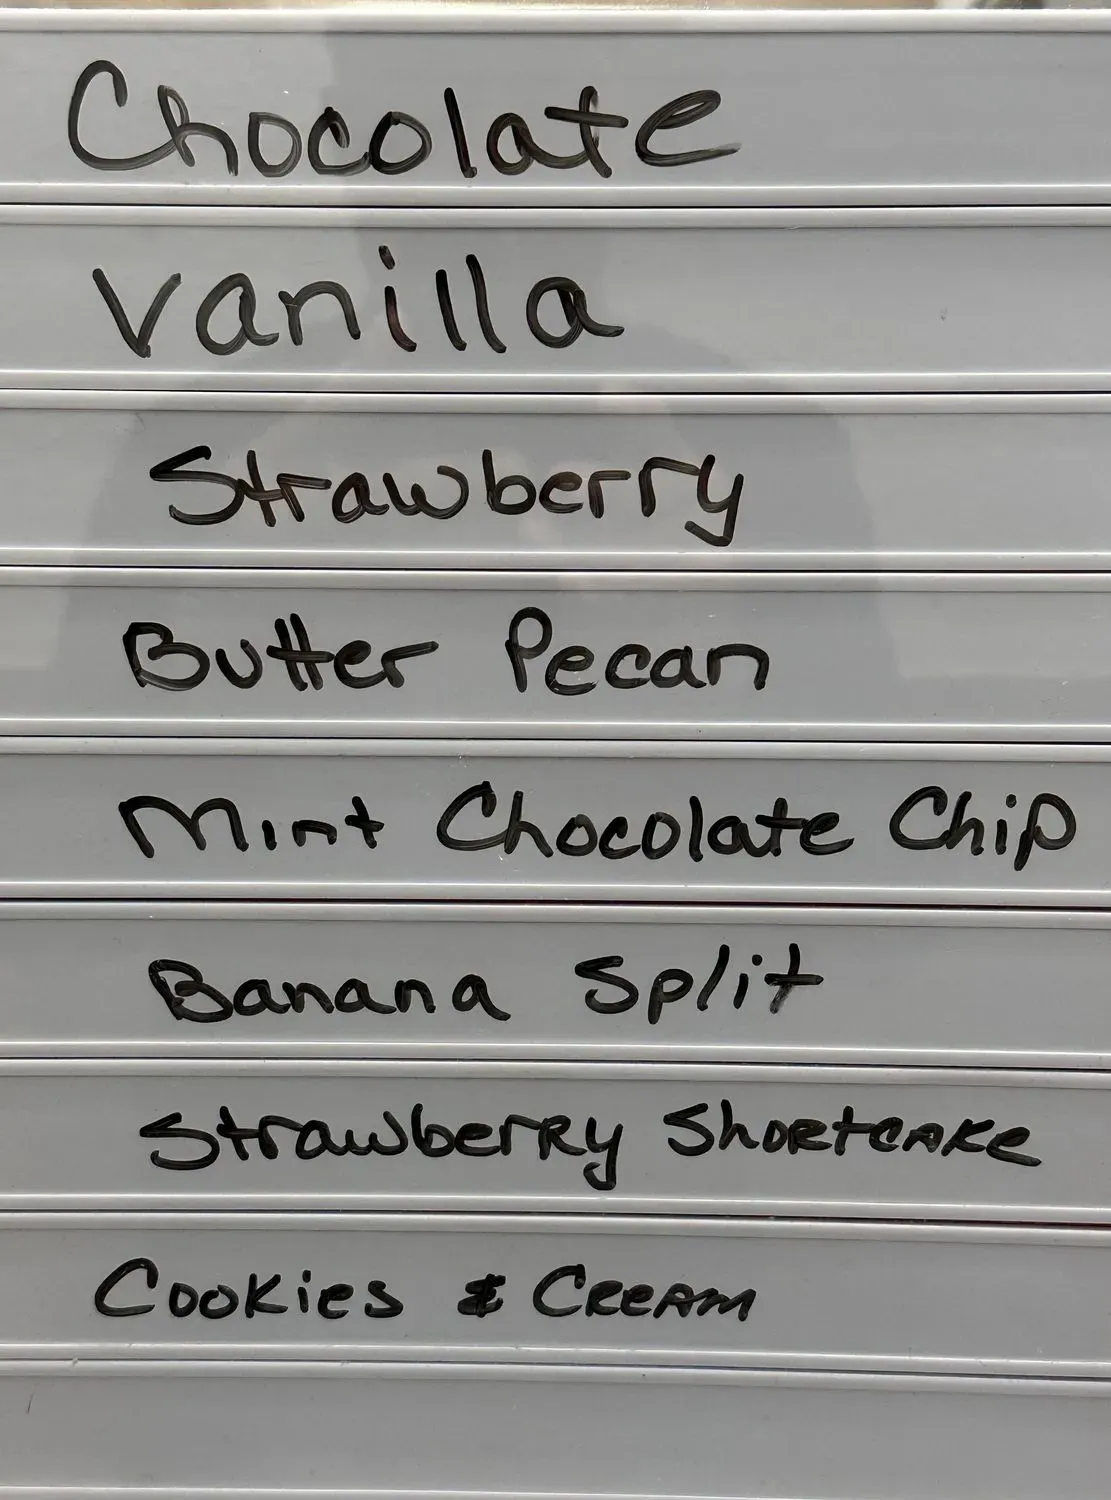 Chocolate
Vanilla
Strawberry
Butter Pecan
Mint Chocolate Chip
Banana Split
Strawberry Shortcake
Cookies & Cream